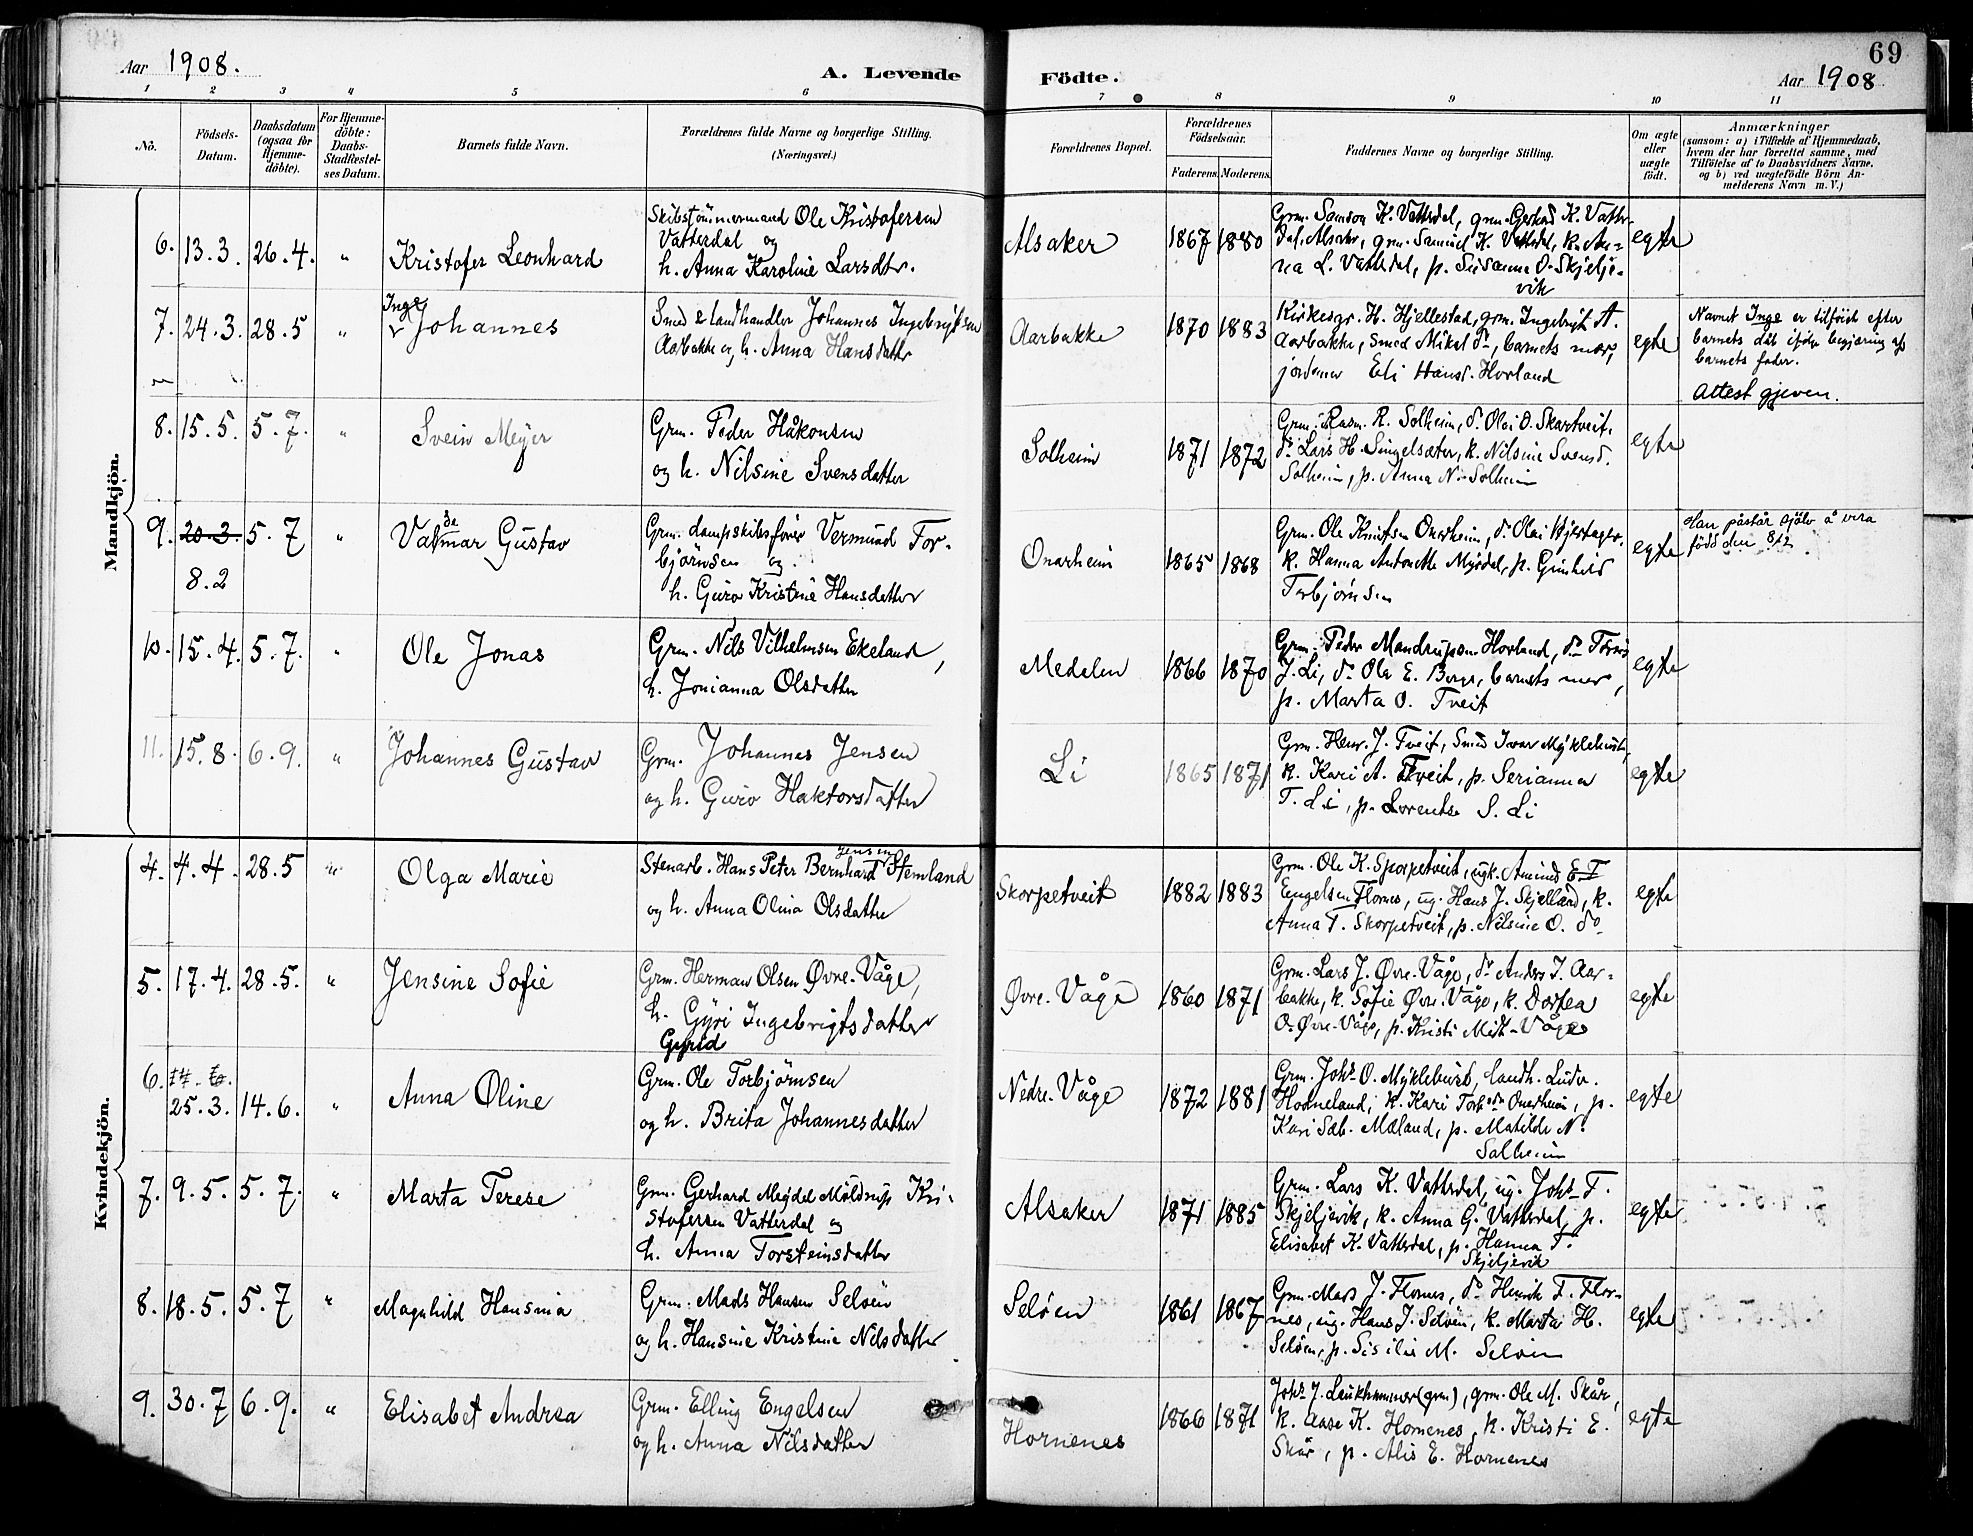 69
Aar 1908.
A. Levende Fødte.
Aar 1908
1 2 3 4 5 6 7 8 9 10 11
No.
Födsels-
Datum.
Daabsdatum
(ogsaa for
Hjemme-
döbte).
For Hjemme-
döbte:
Daabs-
Stadfæstel-
ses Datum.
Barnets fulde Navn.
Forældrenes fulde Navne og borgerlige Stilling.
(Næringsvei.)
Forældrenes Bopæl.
Forældrenes
Födselsaar.
Faderens. Moderens.
Faddernes Navne og borgerlige Stilling.
Om ægte
eller
uægte
født.
Anmærkninger
(saasom: a) i Tilfælde af Hjemmedaab,
hvem der har forrettet samme, med
Tilföielse af to Daabsvidners Navne,
og b) ved uægtefödte Börn An-
melderens Navn m. V.)
Mandkjön.
6. 13.3. 26.4. " Kristofer Leonhard
Skibstömmermand Ole Kristofersen
Vatterdal og
h. Anna Karoline Larsdtr.
Alsaker 1867 1880
Grm. Samson K. Vatterdal, grm. Gerhard K. Vatter-
dal, Alsaker, grm. Samuel K. Vatterdal, k. An-
na L. Vatterdal, p. Susanna O. Skjelje-
vik
egte
7. 24.3. 28.5 " Inge
Johannes
Smed & landhandler Johannes Ingebrigtsen
Aarbakke og h. Anna Hansdatter
Aarbakke 1870 1883
Kirkesgr. H. Hjellestad, grm. Ingebrigt A.
Aarbakke, smed Mikal do, barnets mor,
jordemor Eli Hansd. Hovland
egte
Navnet Inge er tilföiet efter
barnets dåb ifölge begjæring af
barnets fader.
Attest gjeven.
8. 15.5. 5.7. " Svein Meyer
Grm. Peder Håkonsen
og h. Nilsine Svensdatter
Solheim 1871 1872
Grm. Rasm. R. Solheim, do Olai O. Skartveit,
do Lars H. Singelsæter, k. Nilsine Svensd.
Solheim, p. Anna N. Solheim
egte
9. 20.3. 5.7 " Valdemar Gustav
8.2
Grm. dampskibsförer Vermund Tor-
björnsen og
h. Guro Kristine Hansdatter
Onarheim 1865 1868
Grm. Ole Knutsen Onarheim, do Olai Hjertager,
k. Hanna Antonette Myrdal, p. Gunhild
Torbjørnsen
egte
Han påstår sjölv å vera
född den 8/2
10. 15.4. 5.7. " Ole Jonas
Grm. Nils Vilhelmsen Ekeland,
h. Jonianna Olsdatter
Medelen 1866 1870
Grm. Peder Mandrupsen Hovland, do Tørris
J. Li, do Ole E. Berge, barnets mor,
p. Marta O. Tveit
egte
11. 15.8. 6.9. " Johannes Gustav
Grm. Johannes Jensen
og h. Guro Haktorsdatter
Li 1865 1871
Grm. Henr. J. Tveit, smed Ivar Myklebust,
k. Kari A. Tveit, p. Serianna
T. Li, p. Lorentse S. Li
egte
Kvindekjön.
4. 4.4. 28.5 " Olga Marie
Jensen
Stenarb. Hans Peter Bernhard Stemland
og h. Anna Olina Olsdatter
Skorpetveit 1882 1883
Grm. Ole K. Skorpetveit, ugk. Amund E. T
Engelsen Flornes, ug. Hans J. Skjelland, k.
Anna T. Skorpetveit, p. Nilsine O. do
egte
5. 17.4. 28.5. " Jensine Sofie
Grm. Herman Olsen Øvre-Våge,
h. Gyri Ingebrigtsdatter
Gyrid
Øvre-Våge 1860 1871
Grm. Lars J. Øvre-Våge, do Anders I. Aar-
bakke, k. Sofie Øvre-Våge, k. Dortea
O. Øvre-Våge, p. Kristi Midt-Våge
egte
6. 25.3. 14.6. " Anna Oline
Grm. Ole Torbjörnsen
og h. Brita Johannesdatter
Nedre-Våge 1872 1881
Grm. Johs O. Myklebust, landh. Ludv.
Hodneland, k. Kari Torbsdr Onarheim, p.
Kari Sæb. Mæland, p. Matilde N.
Solheim
egte
7. 9.5. 5.7. " Marta Terese
Grm. Gerhard Meydel Moldrup Kri-
stofersen Vatterdal og
h. Anna Torsteinsdatter
Alsaker 1871 1885
Grm. Lars K. Vatterdal, ug. Johs T.
Skjeljevik, k. Anna G. Vatterdal, p.
Elisabet K. Vatterdal, p. Hanna T.
Skjeljevik
egte
8. 18.5. 5.7 " Magnhild Hansina
Grm. Mads Hansen Seløen
og h. Hansine Kristine Nilsdatter
Seløen 1861 1867
Grm. Mars J. Flornes, do Henrik T. Flor-
nes, ug. Hans J. Selöen, k. Marta H.
Seløen, p. Sisilie M. Seløen
egte
9. 30.7 6.9. " Elisabet Andrea
Grm. Elling Engelsen
og h. Anna Nilsdatter
Hornenes 1866 1871
Johs J. Laukhammer (grm), grm. Ole M. Skår,
k. Aase K. Hornenes, k. Kristi E.
Skår, p. Alis E. Hornenes
egte